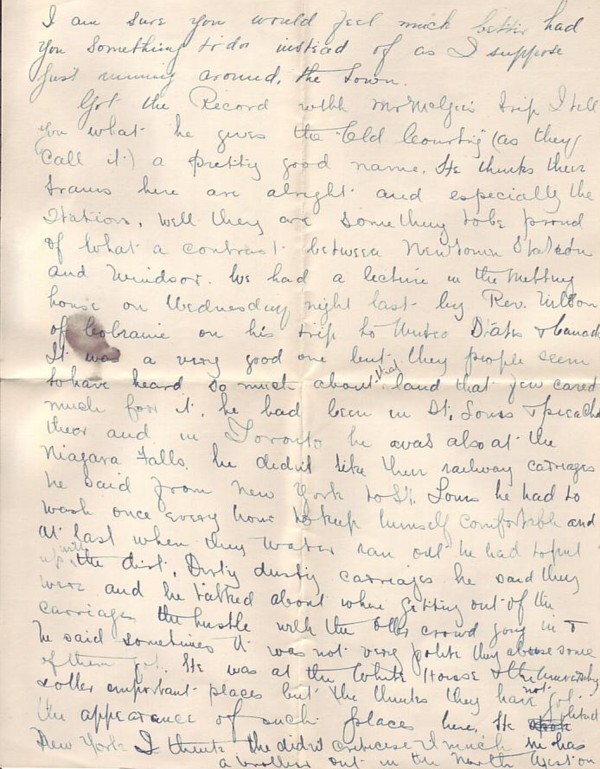 I am sure you would feel much better had
you something to do instead of as I suppose
just running around, the town.
Got the Record with Mr McGee's trip I tell
you what he gives the Old Country (as they
call it) a pretty good name. He thinks their
trams here are alright and especially the
Stations, well they are something to be proud
of What a contrast between Newtown Station
and Windsor. We had a lecture in the Meeting
house on Wednesday night last by Rev.
of on his trip to United States & Canada
It was a very good one but they people seem
to have heard so much about that land that few cared
much for it, he had been in St. Louis & preached
there and in Toronto he was also at the
Niagara Falls, he didn't like their railway carriages
he said from New York to St. Louis he had to
wash once every hour to keep himself comfortable and
at last when they water ran out he had to put
up with the dirt, Dirty dusty carriages he said they
were and he talked about when getting out of the
carriages the hustle with the other crowd going in &
he said sometimes it was not very polite they abuse some
of them got. He was at the White House & the University
& other important places but he thinks they have not got
the appearance of such places here, He
New York I think he didn't criticise I much he has
a brother out in the North Western